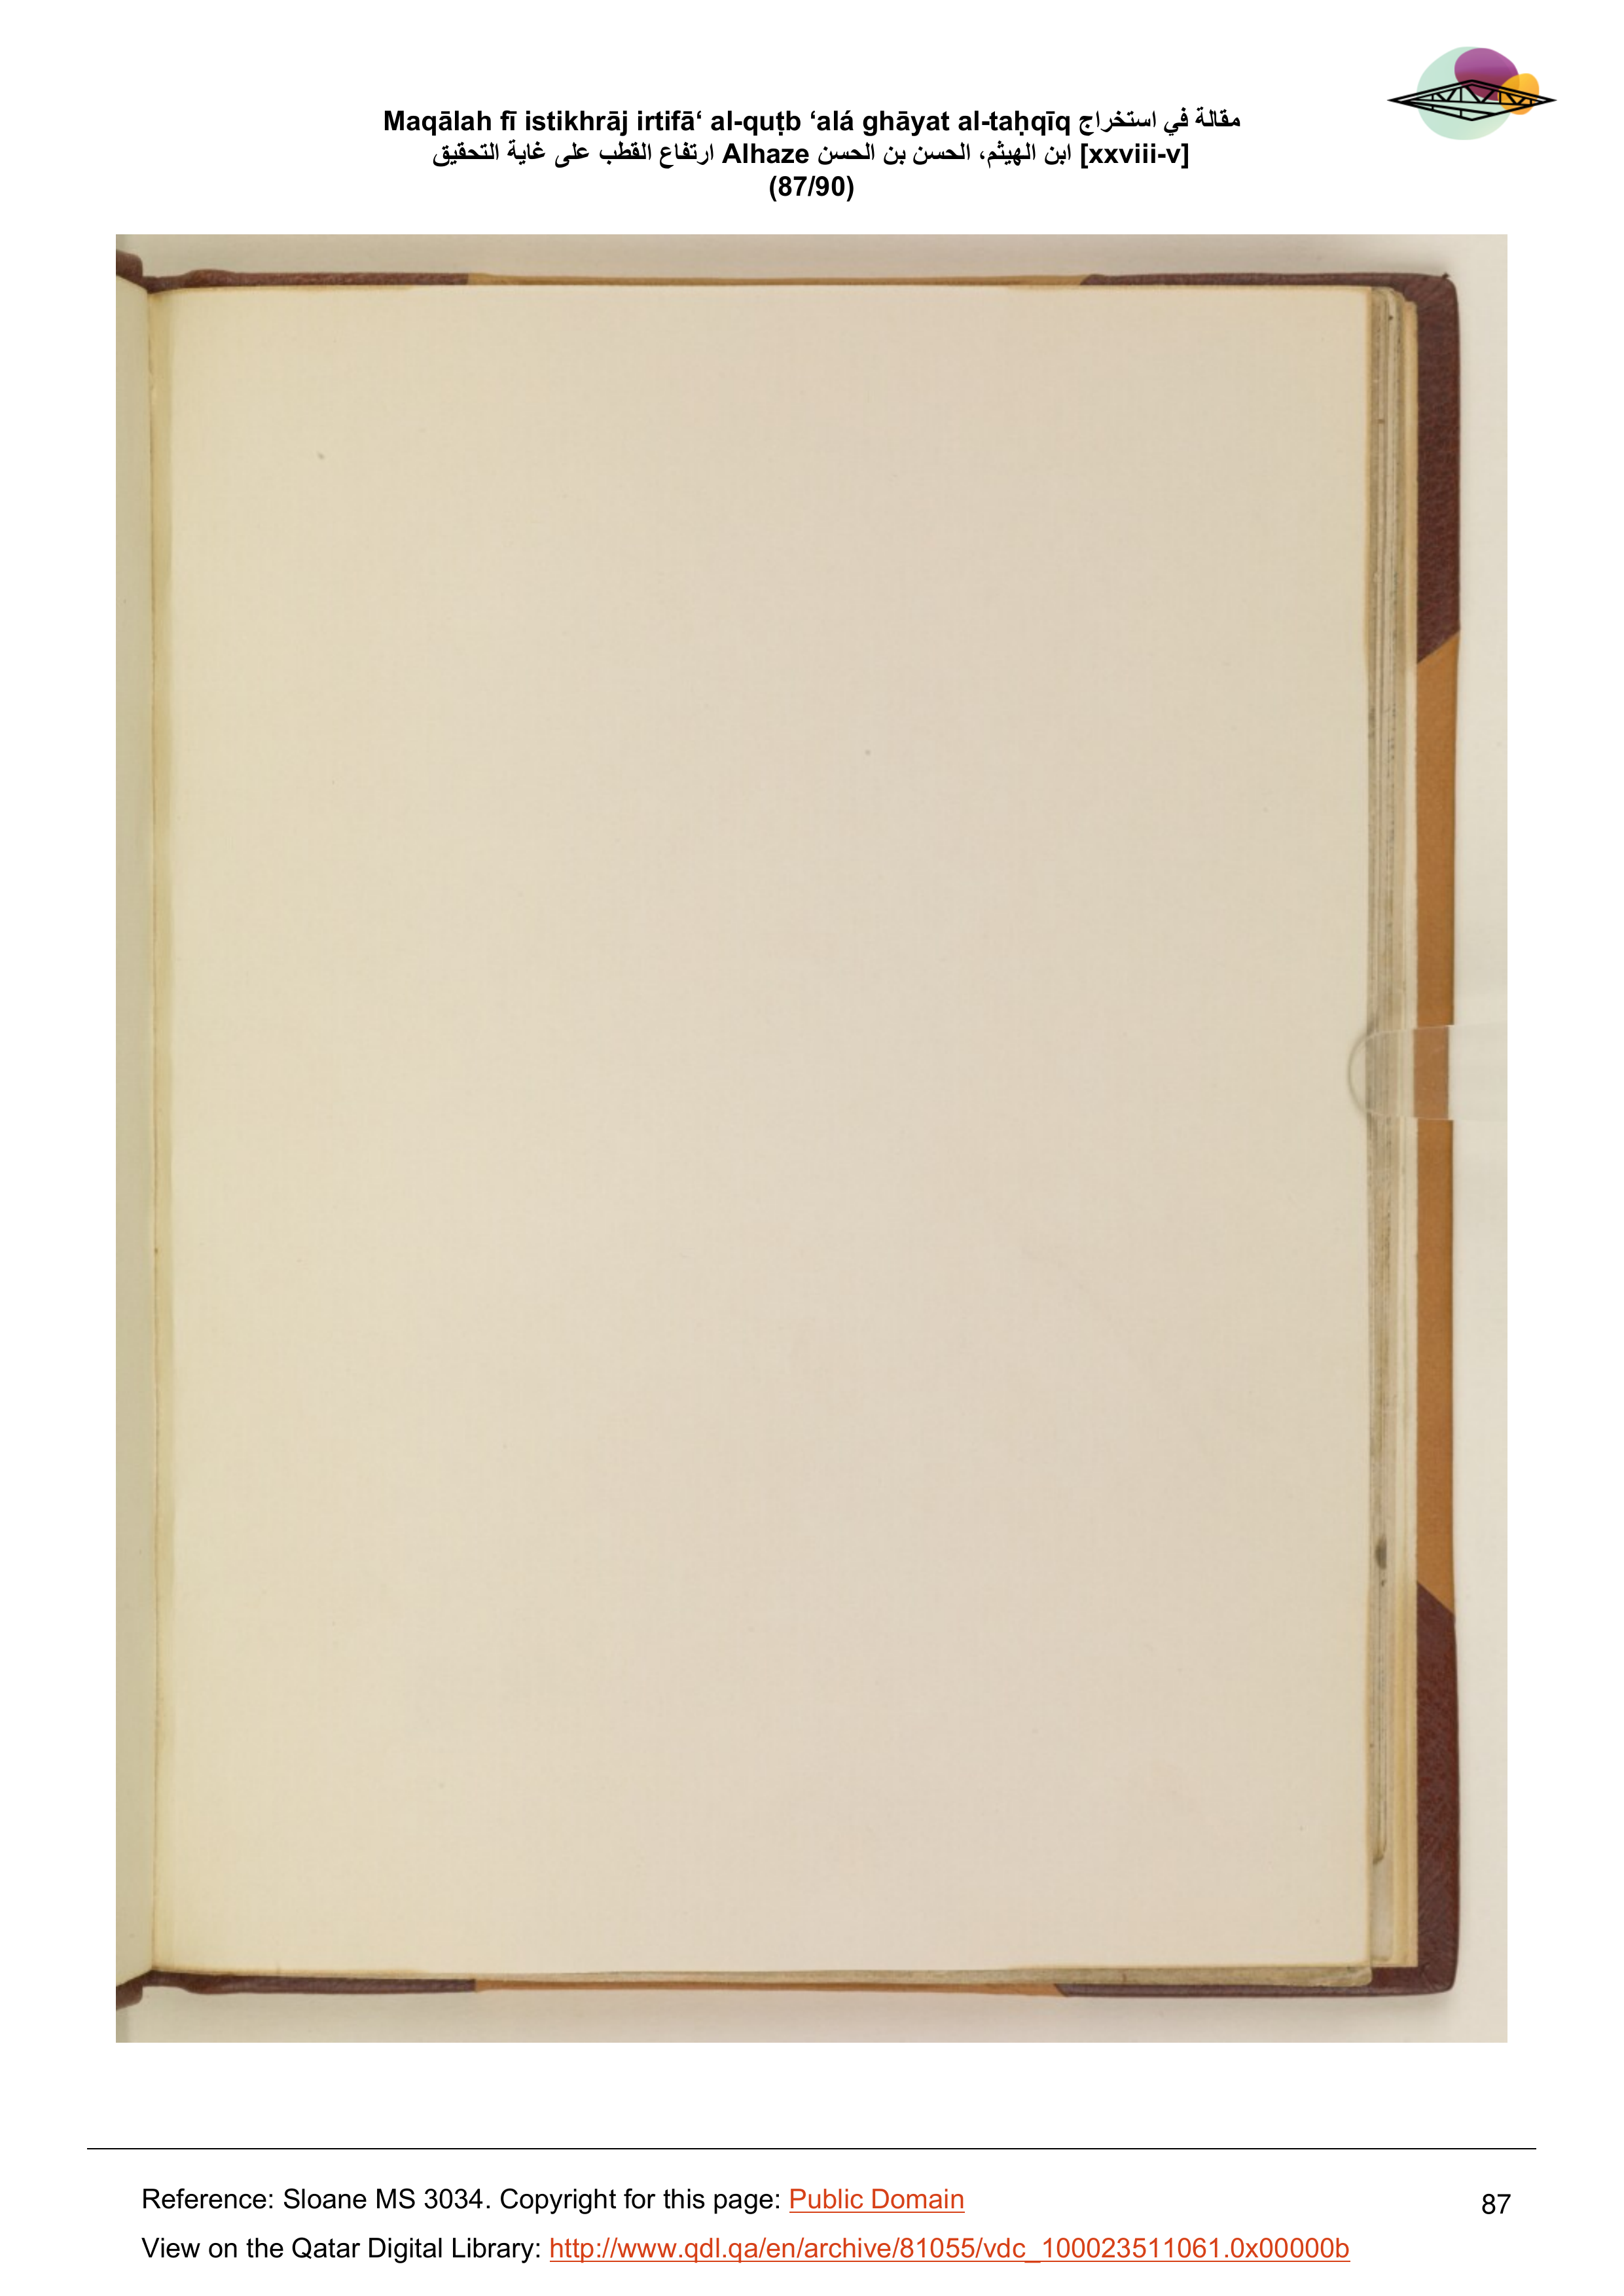 Maqālah fī istikhrāj irtifā‘ al-quṭb ‘alá ghāyat al-taḥqīq مقالة في استخراج
ارتفاع القطب على غاية التحقيق Alhaze ابن الهيثم، الحسن بن الحسن [xxviii-v]
(87/90)
Reference: Sloane MS 3034. Copyright for this page: Public Domain
87
View on the Qatar Digital Library: http://www.qdl.qa/en/archive/81055/vdc_100023511061.0x00000b